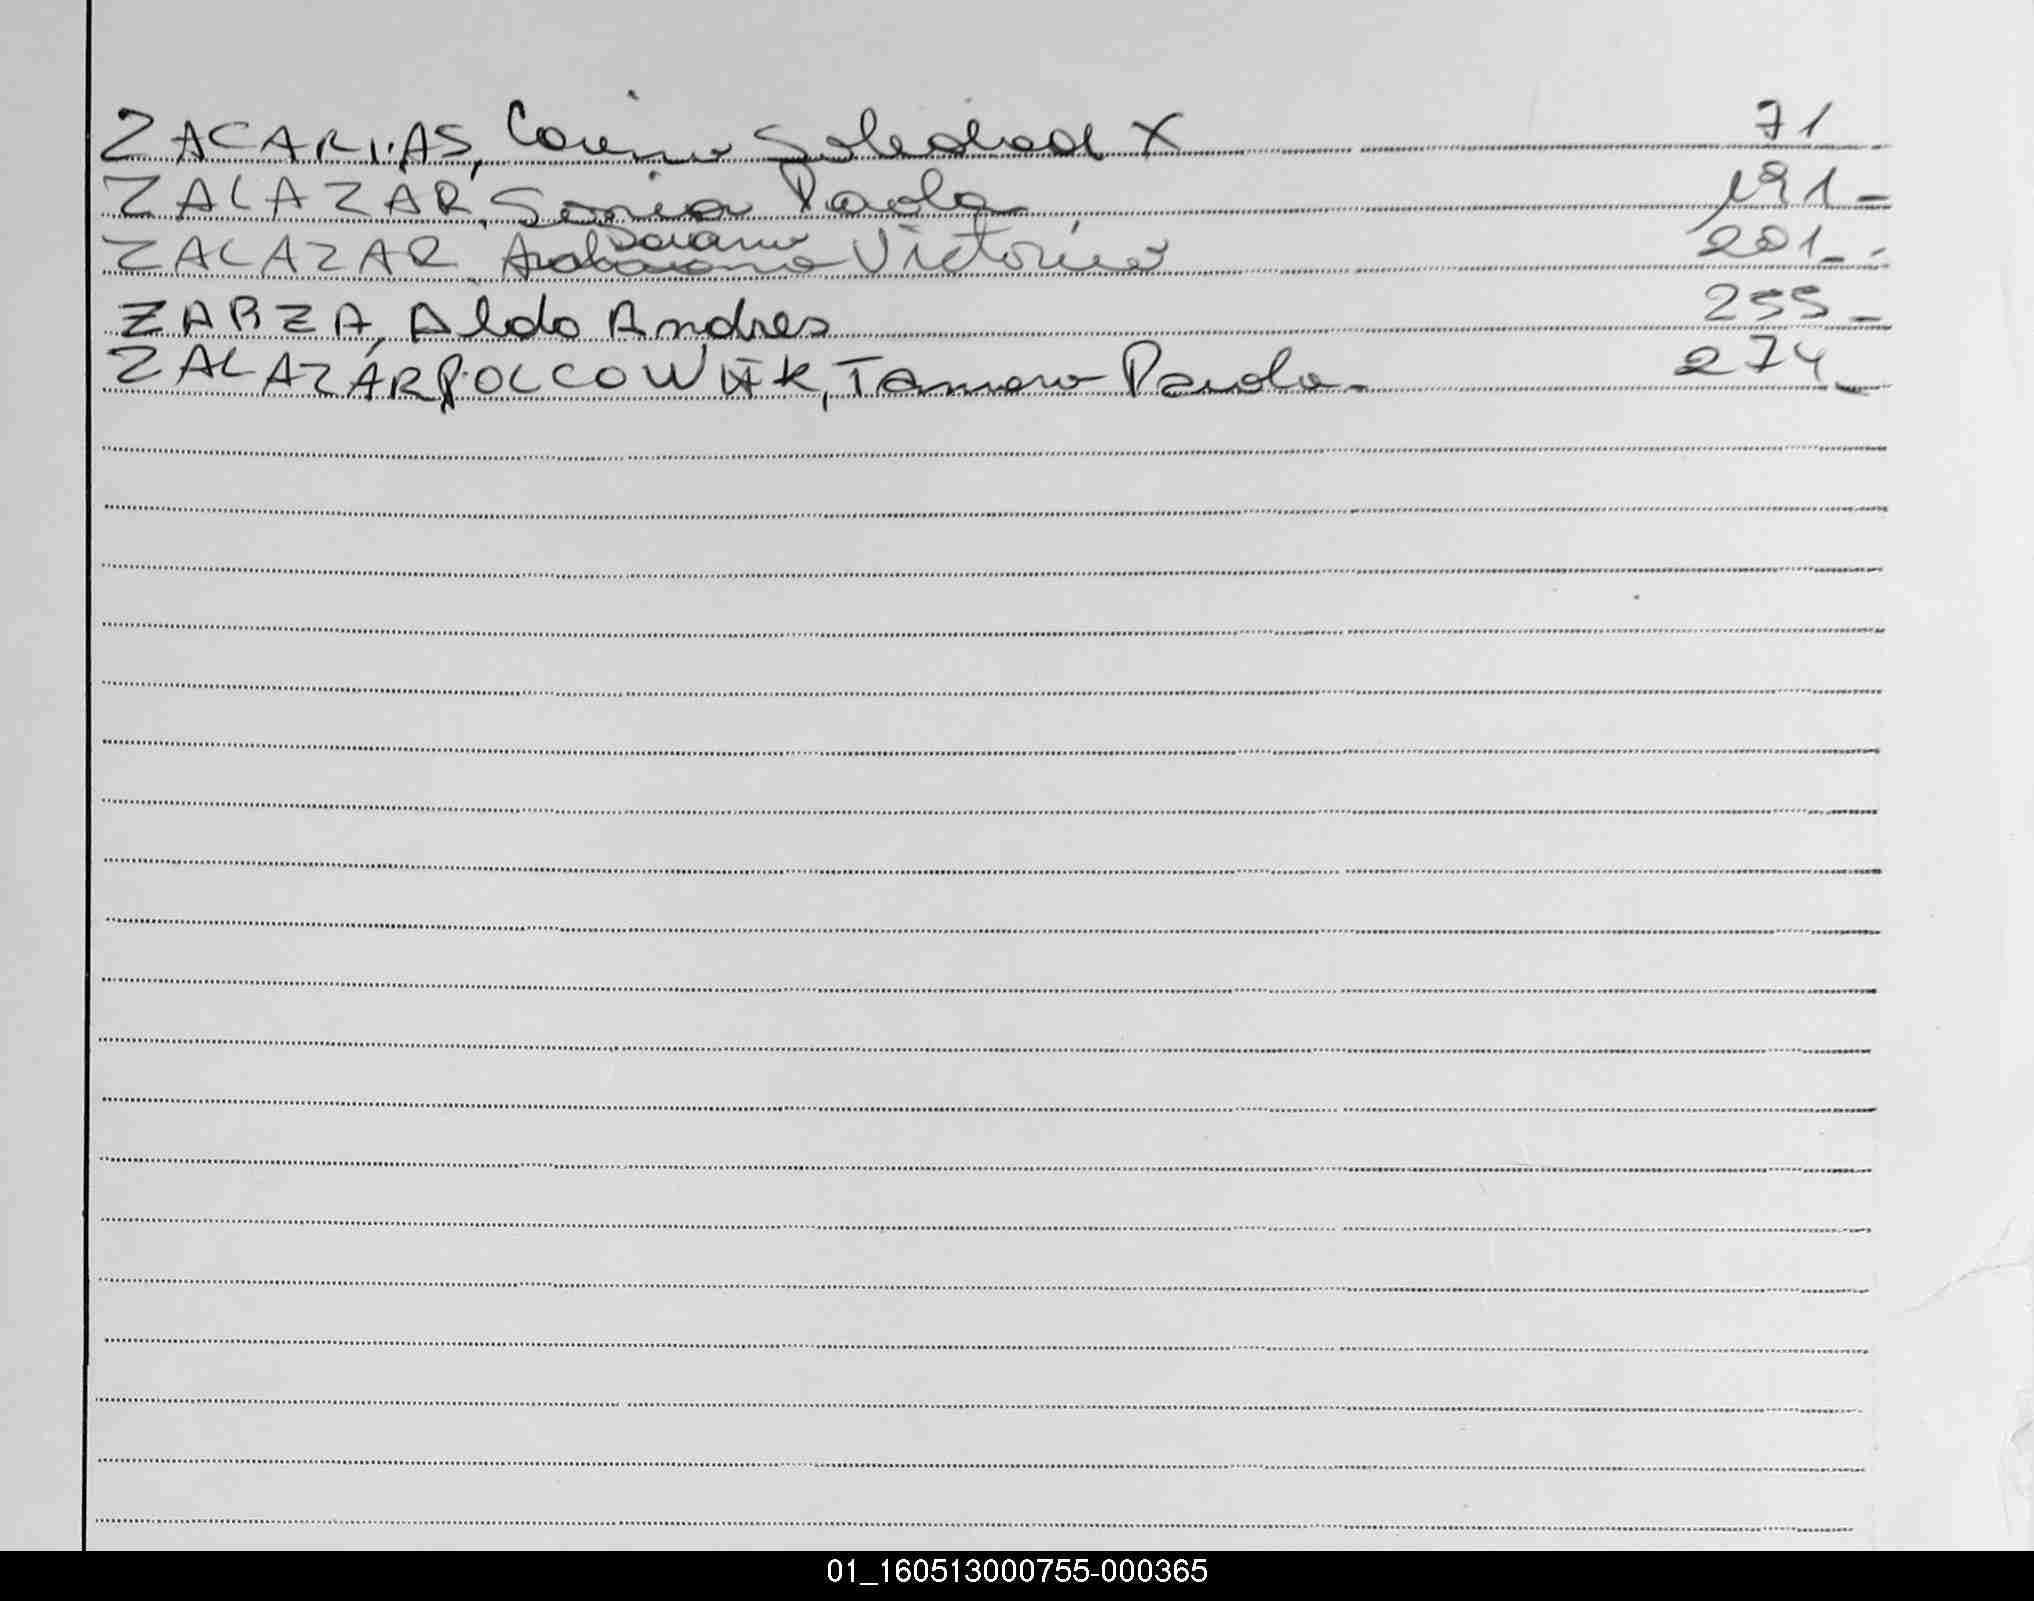 ZACARIAS, Corina Soledad X 71
ZALAZAR, Sonia Paola 191-
ZALAZAR Victorino 201-
ZARZA, Aldo Andres 255-
ZALAZAR Tamara Paola- 274-
01_160513000755-000365